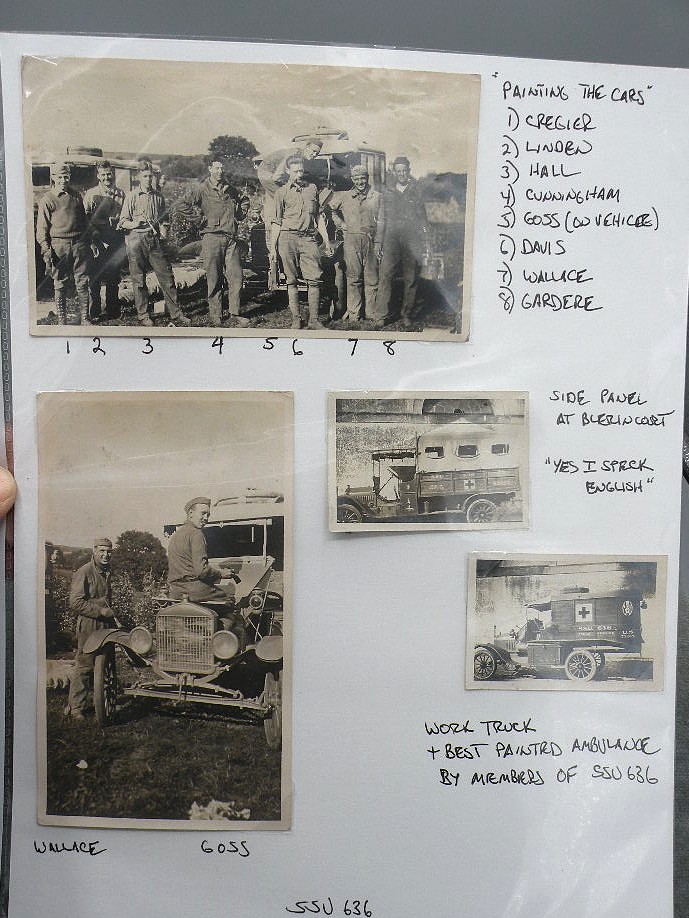 "PAINTING THE CARS"
1) CREGIER
2) LINDEN
3) HALL
4) CUNNINGHAM
5) GOSS (ON VEHICLE)
6) DAVIS
7) WALLACE
8) GARDERE
1 2 3 4 5 6 7 8
SIDE PANEL
AT BLERINCORT
"YES I SPECK
ENGLISH"
SSU 636
U.S.
WORK TRUCK
+ BEST PAINTED AMBULANCE
BY MEMBERS OF SSU 636
WALLACE GOSS
SSU 636